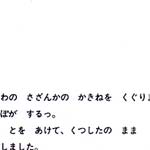 わの さざんかの かきねを くぐりま
ぽが するっ。
とを あけて、くつしたの まま
しました。